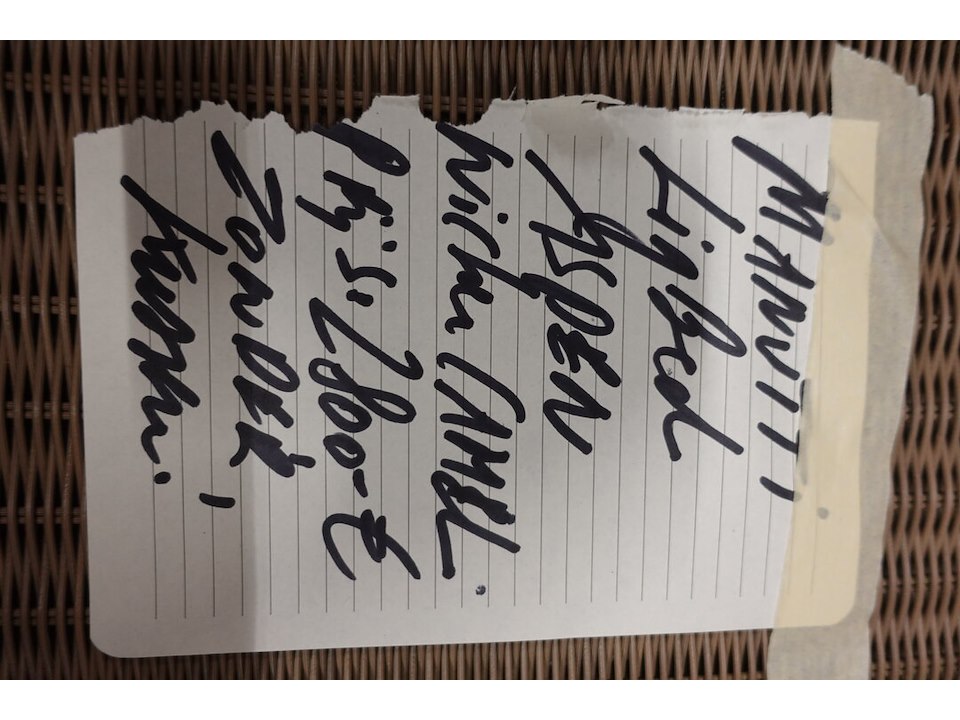 MANUTTI
Linked
ASPEN
wicker CAMEL
Prijs: 2800-€
ZONDER
kussen.